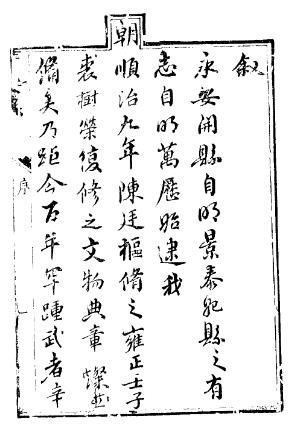 叙
永安開縣自明景泰始縣之有
志自明萬歷始逮我
朝順治九年陳廷樞脩之雍正壬子
裘樹榮復修之文物典章燦然
備矣乃距今百年罕踵武者辛
序